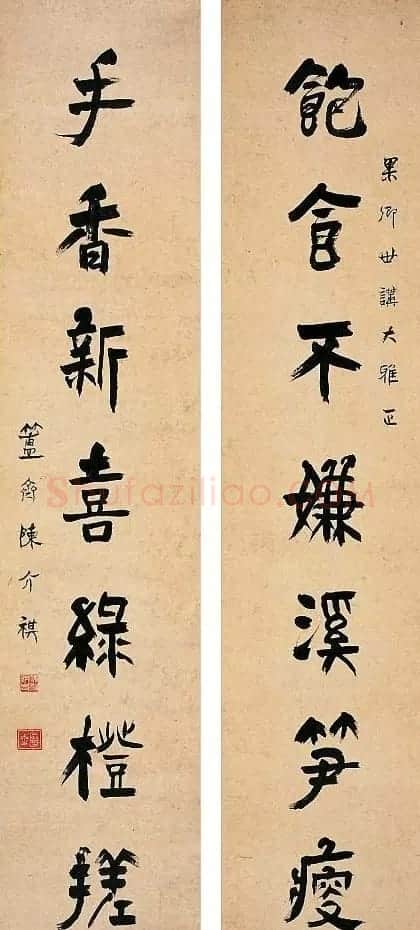 果卿世講大雅正
飽食不嫌溪笋瘦
手香新喜綠橙搓
簠齋陳介祺
Shufaziliao.COM